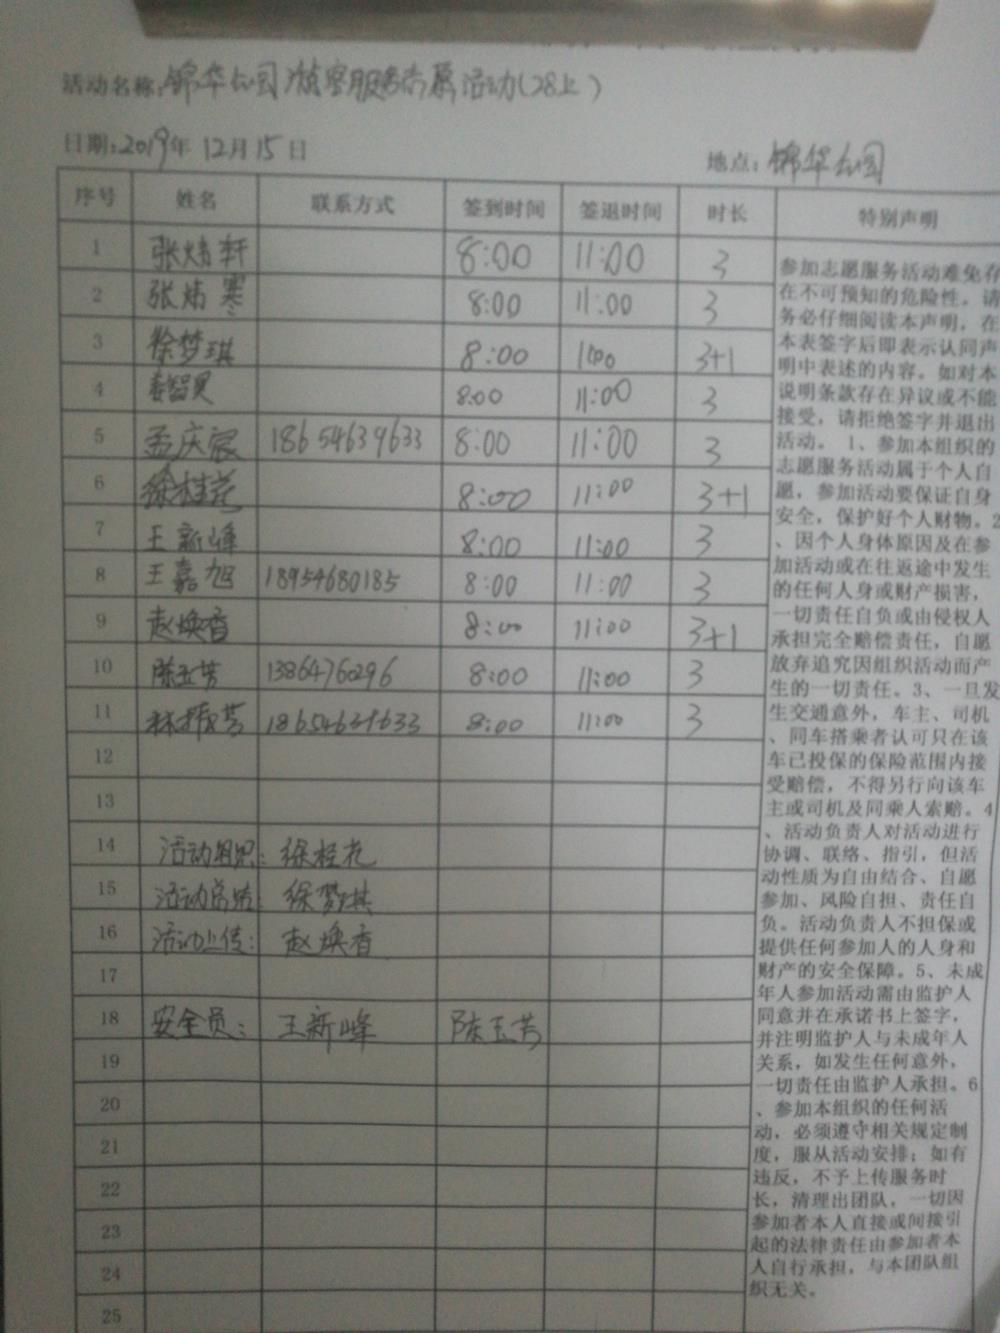 活动名称:锦华公园游客服务志愿活动(28上)
日期:2019年12月15日
地点:锦华公园
序号 姓名 联系方式 签到时间 签退时间 时长 特别声明
1 张炜轩 8:00 11:00 3
2 张炜寒 8:00 11:00 3
3 徐梦琪 8:00 11:00 3+1
4 8:00 11:00 3
5 孟庆宸 18654639633 8:00 11:00 3
6 徐桂花 8:00 11:00 3+1
7 王新峰 8:00 11:00 3
8 王嘉旭 18954680185 8:00 11:00 3
9 赵焕香 8:00 11:00 3+1
10 陈玉芳 13864760296 8:00 11:00 3
11 林振芳 18654639633 8:00 11:00 3
12
13
14 活动组织: 徐桂花
15 活动总结: 徐梦琪
16 活动上传: 赵焕香
17
18 安全员: 王新峰 陈玉芳
19
20
21
22
23
24
25
参加志愿服务活动难免存
在不可预知的危险性。请
务必仔细阅读本声明，在
本表签字后即表示认同声
明中表述的内容。如对本
说明条款存在异议或不能
接受，请拒绝签字并退出
活动。 1、参加本组织的
志愿服务活动属于个人自
愿，参加活动要保证自身
安全，保护好个人财物。2
、因个人身体原因及在参
加活动或在往返途中发生
的任何人身或财产损害，
一切责任自负或由侵权人
承担完全赔偿责任，自愿
放弃追究因组织活动而产
生的一切责任。3、一旦发
生交通意外，车主、司机
、同车搭乘者认可只在该
车已投保的保险范围内接
受赔偿，不得另行向该车
主或司机及同乘人索赔。4
、活动负责人对活动进行
协调、联络、指引，但活
动性质为自由结合、自愿
参加、风险自担、责任自
负。活动负责人不担保或
提供任何参加人的人身和
财产的安全保障。5、未成
年人参加活动需由监护人
同意并在承诺书上签字，
并注明监护人与未成年人
关系，如发生任何意外，
一切责任由监护人承担。6
、参加本组织的任何活
动，必须遵守相关规定制
度，服从活动安排；如有
违反，不予上传服务时
长，清理出团队，一切因
参加者本人直接或间接引
起的法律责任由参加者本
人自行承担，与本团队组
织无关。